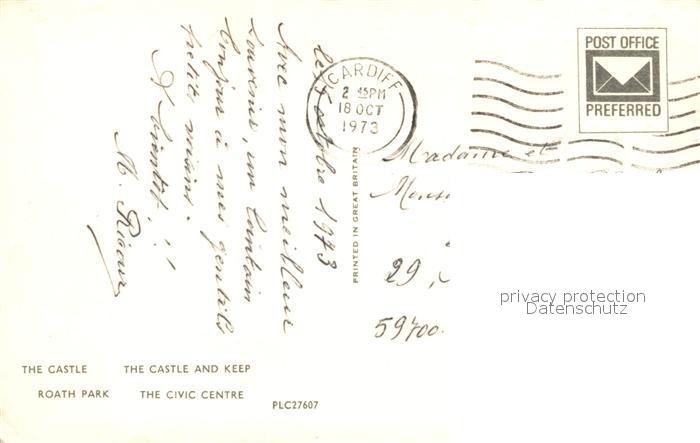 le 17 octobre 1973
Avec mon meilleur
souvenir, un lointain
bonjour à mes gentils
petits voisins.
A bientôt !!
M.
CARDIFF
2 45PM
18 OCT
1973
POST OFFICE
PREFERRED
PRINTED IN GREAT BRITAIN
Madame et
29,
59700.
privacy protection
Datenschutz
THE CASTLE THE CASTLE AND KEEP
ROATH PARK THE CIVIC CENTRE
PLC27607